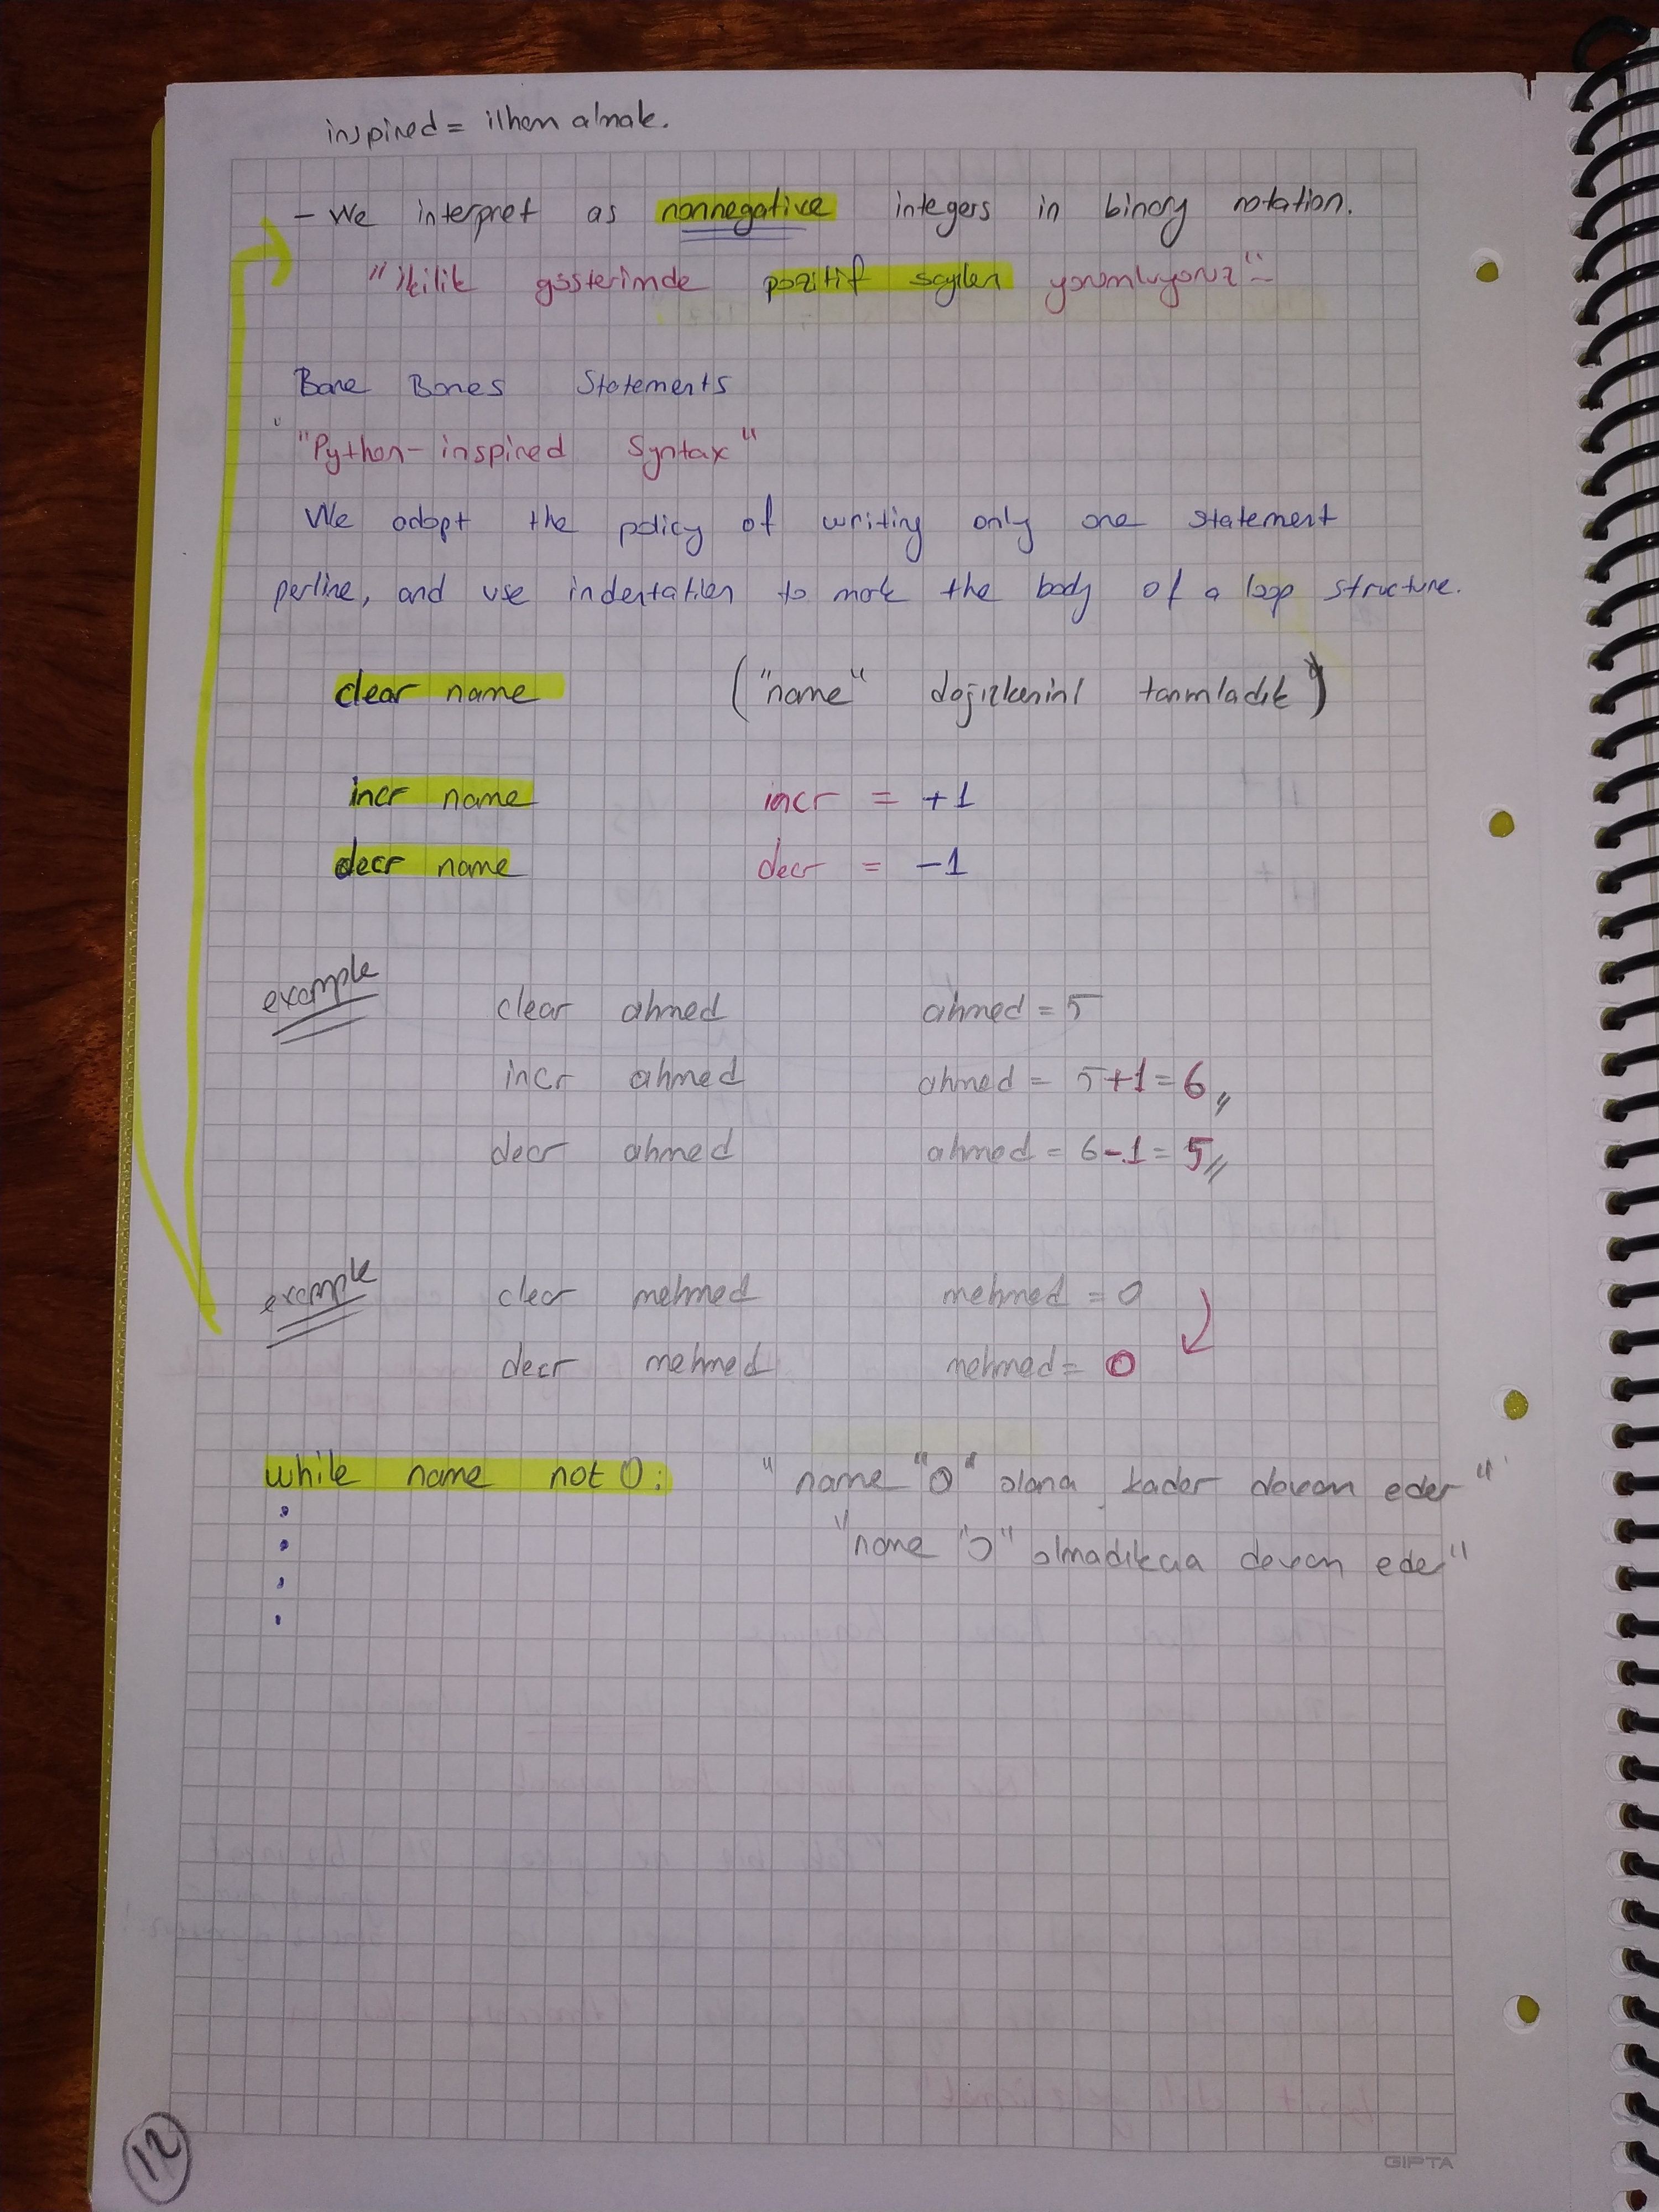 inspired = ilham almak.
- We interpret as nonnegative integers in binary notation.
"ikilik gösterimde pozitif sayıları yorumluyoruz"
Bare Bones Statements
"Python-inspired Syntax"
We adopt the policy of writing only one statement
perline, and use indentation to mark the body of a loop structure.
clear name ("name" değişkenini tanımladık")
incr name incr = +1
decr name decr = -1
example clear ahmed ahmed = 5
incr ahmed ahmed = 5+1=6,,
decr ahmed ahmed = 6-1=5,,
example clear mehmed mehmed = 0
decr mehmed mehmed = 0
while name not 0: "name "0" olana kadar devam eder"
"name "0" olmadıkca devam eder"
12
GIPTA